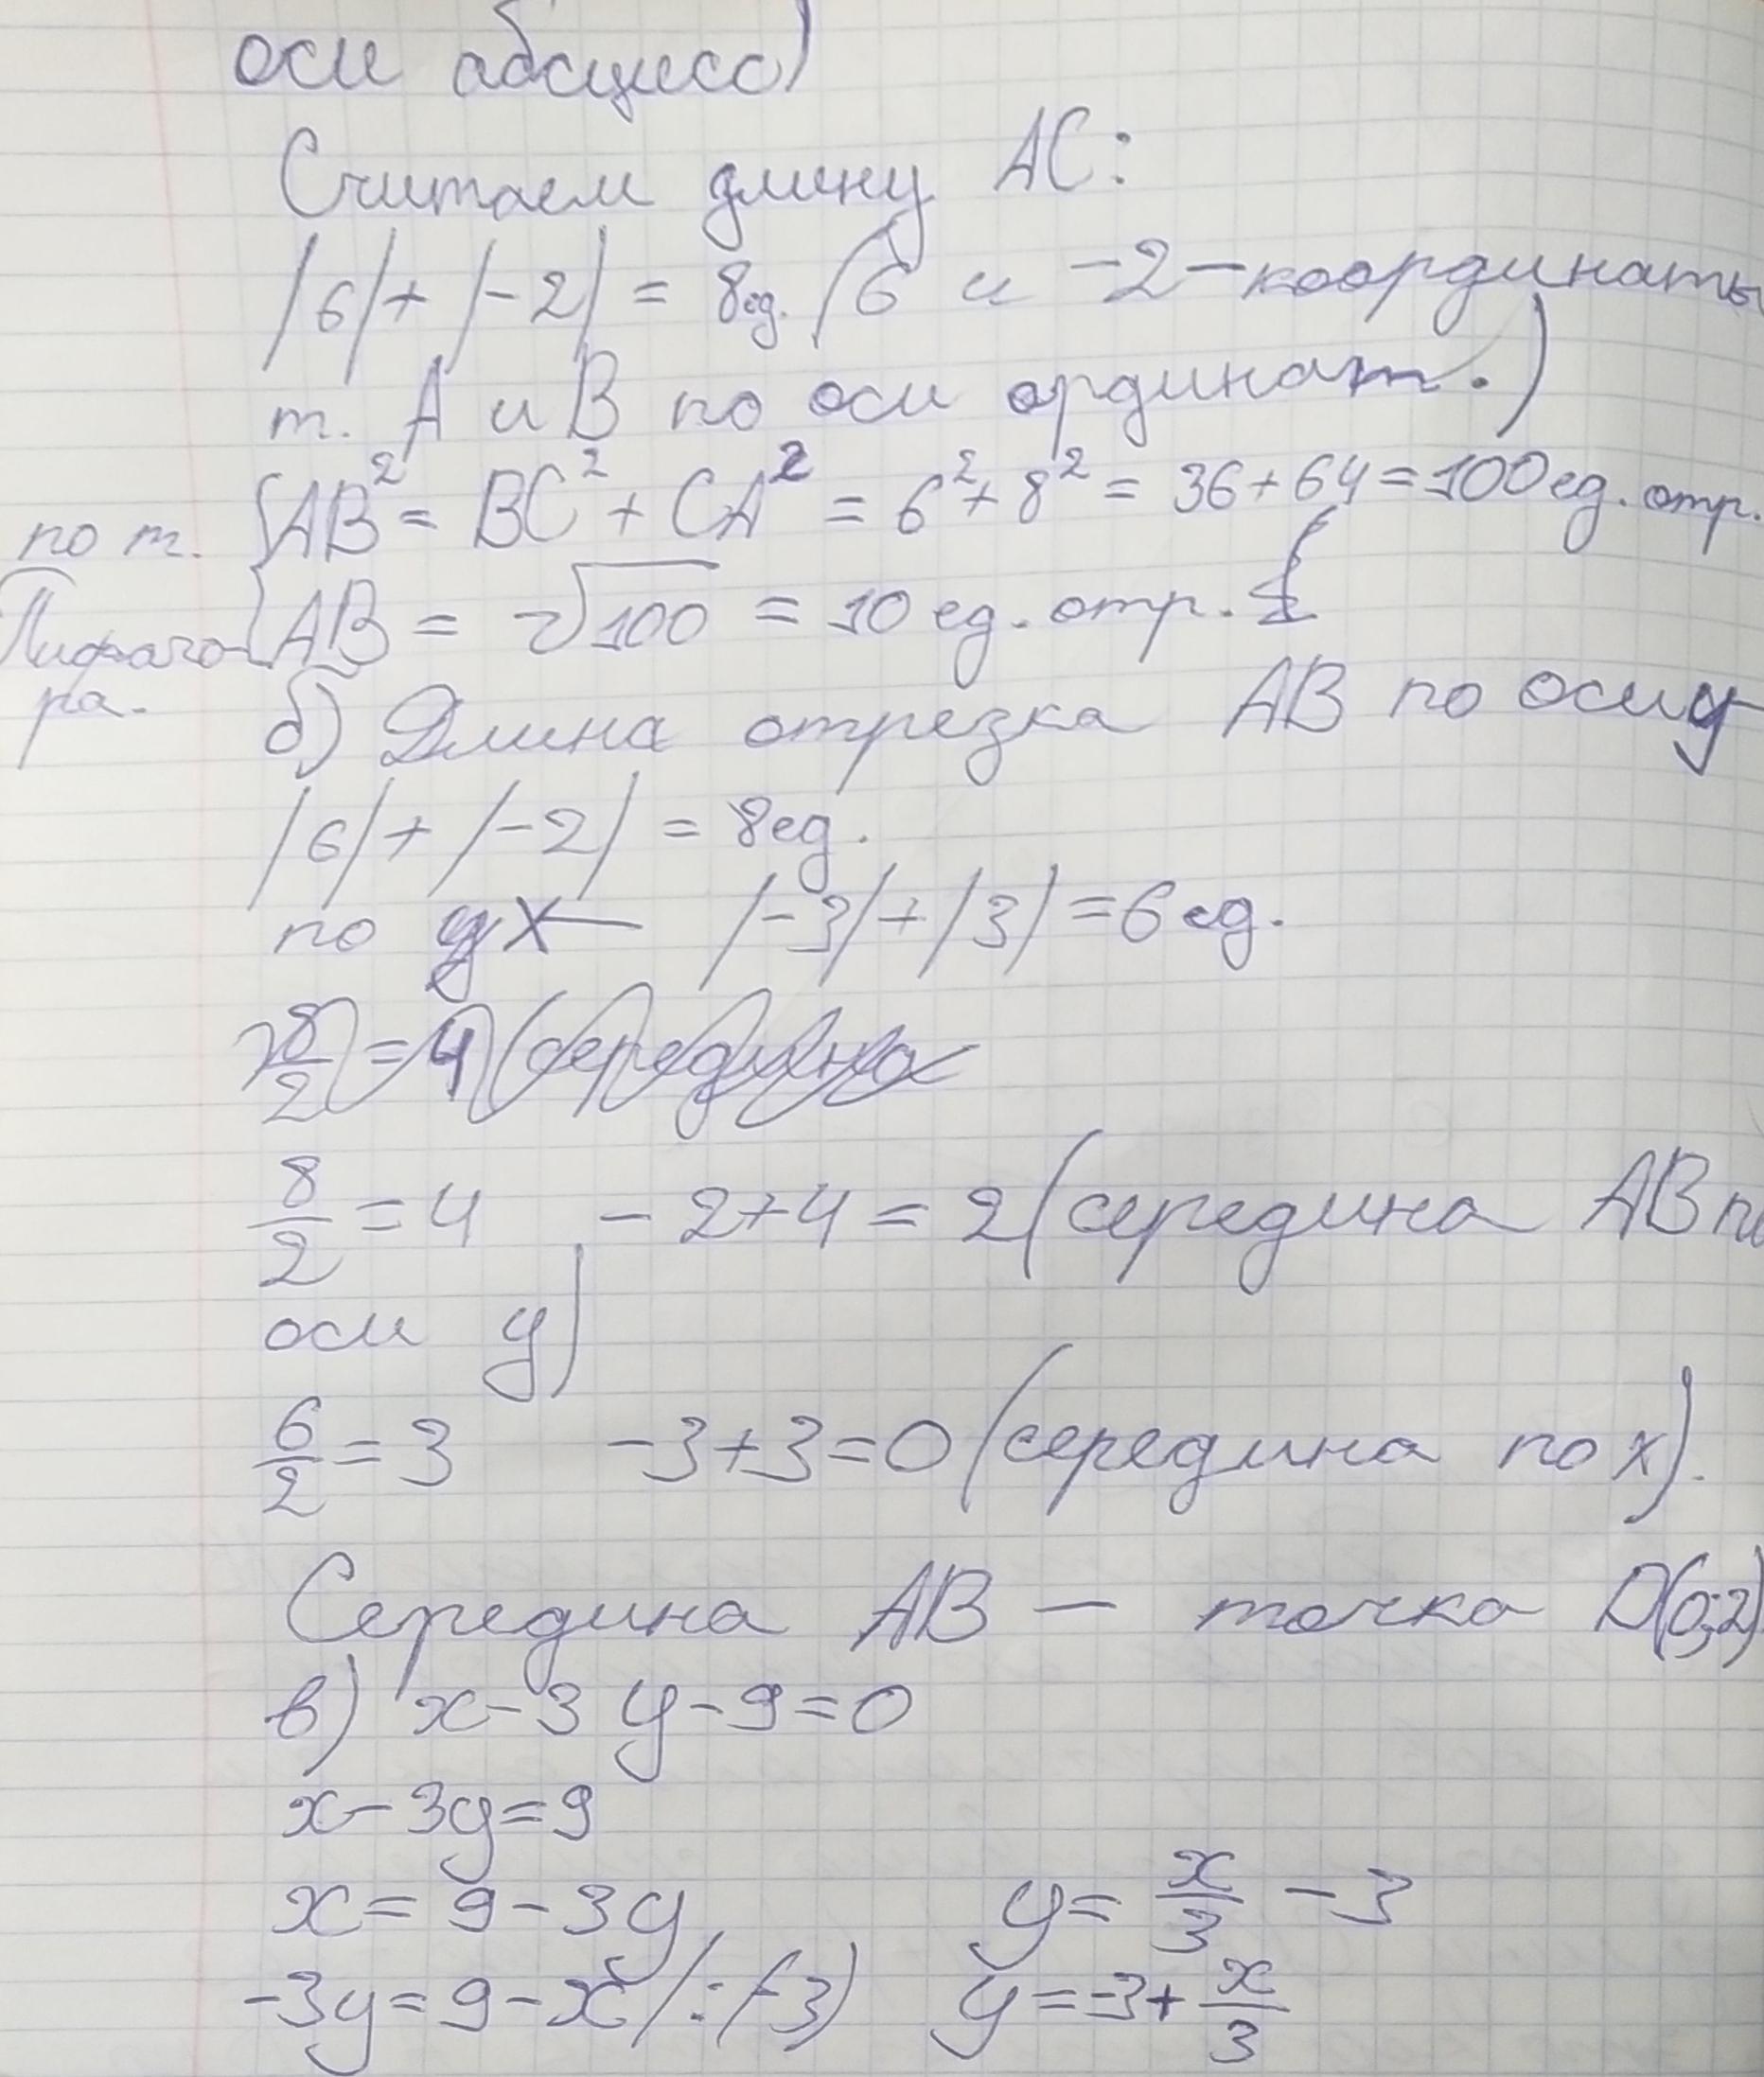 оси абсцисс)
Считаем длину AC:
|6|+|-2| = 8ед. (6 и -2 - координаты
т. A и B по оси ординат.)
AB² = BC² + CA² = 6² + 8² = 36 + 64 = 100 ед. отр.
по т. Пифагора.
AB = √100 = 10 ед. отр.
б) Длина отрезка AB по оси y
|6| + |-2| = 8ед.
по x - |-3| + |3| = 6 ед.
8/2 = 4 (середина
8/2 = 4 -2+4 = 2 (середина AB по
оси y)
6/2 = 3 -3+3=0 (середина по x).
Середина AB — точка D(0;2)
в) x-3y-9=0
x-3y=9
x = 9-3y y = x/3 - 3
-3y = 9-x |:(-3) y = -3 + x/3